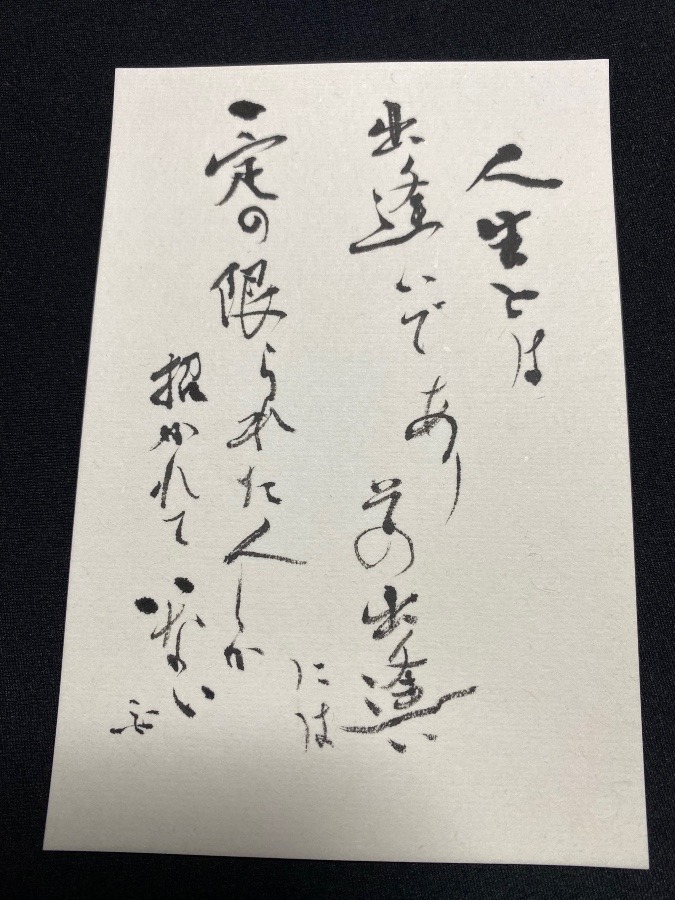 人生とは
出逢いであり その出逢い
には
一定の限られた人しか
招かれて いない